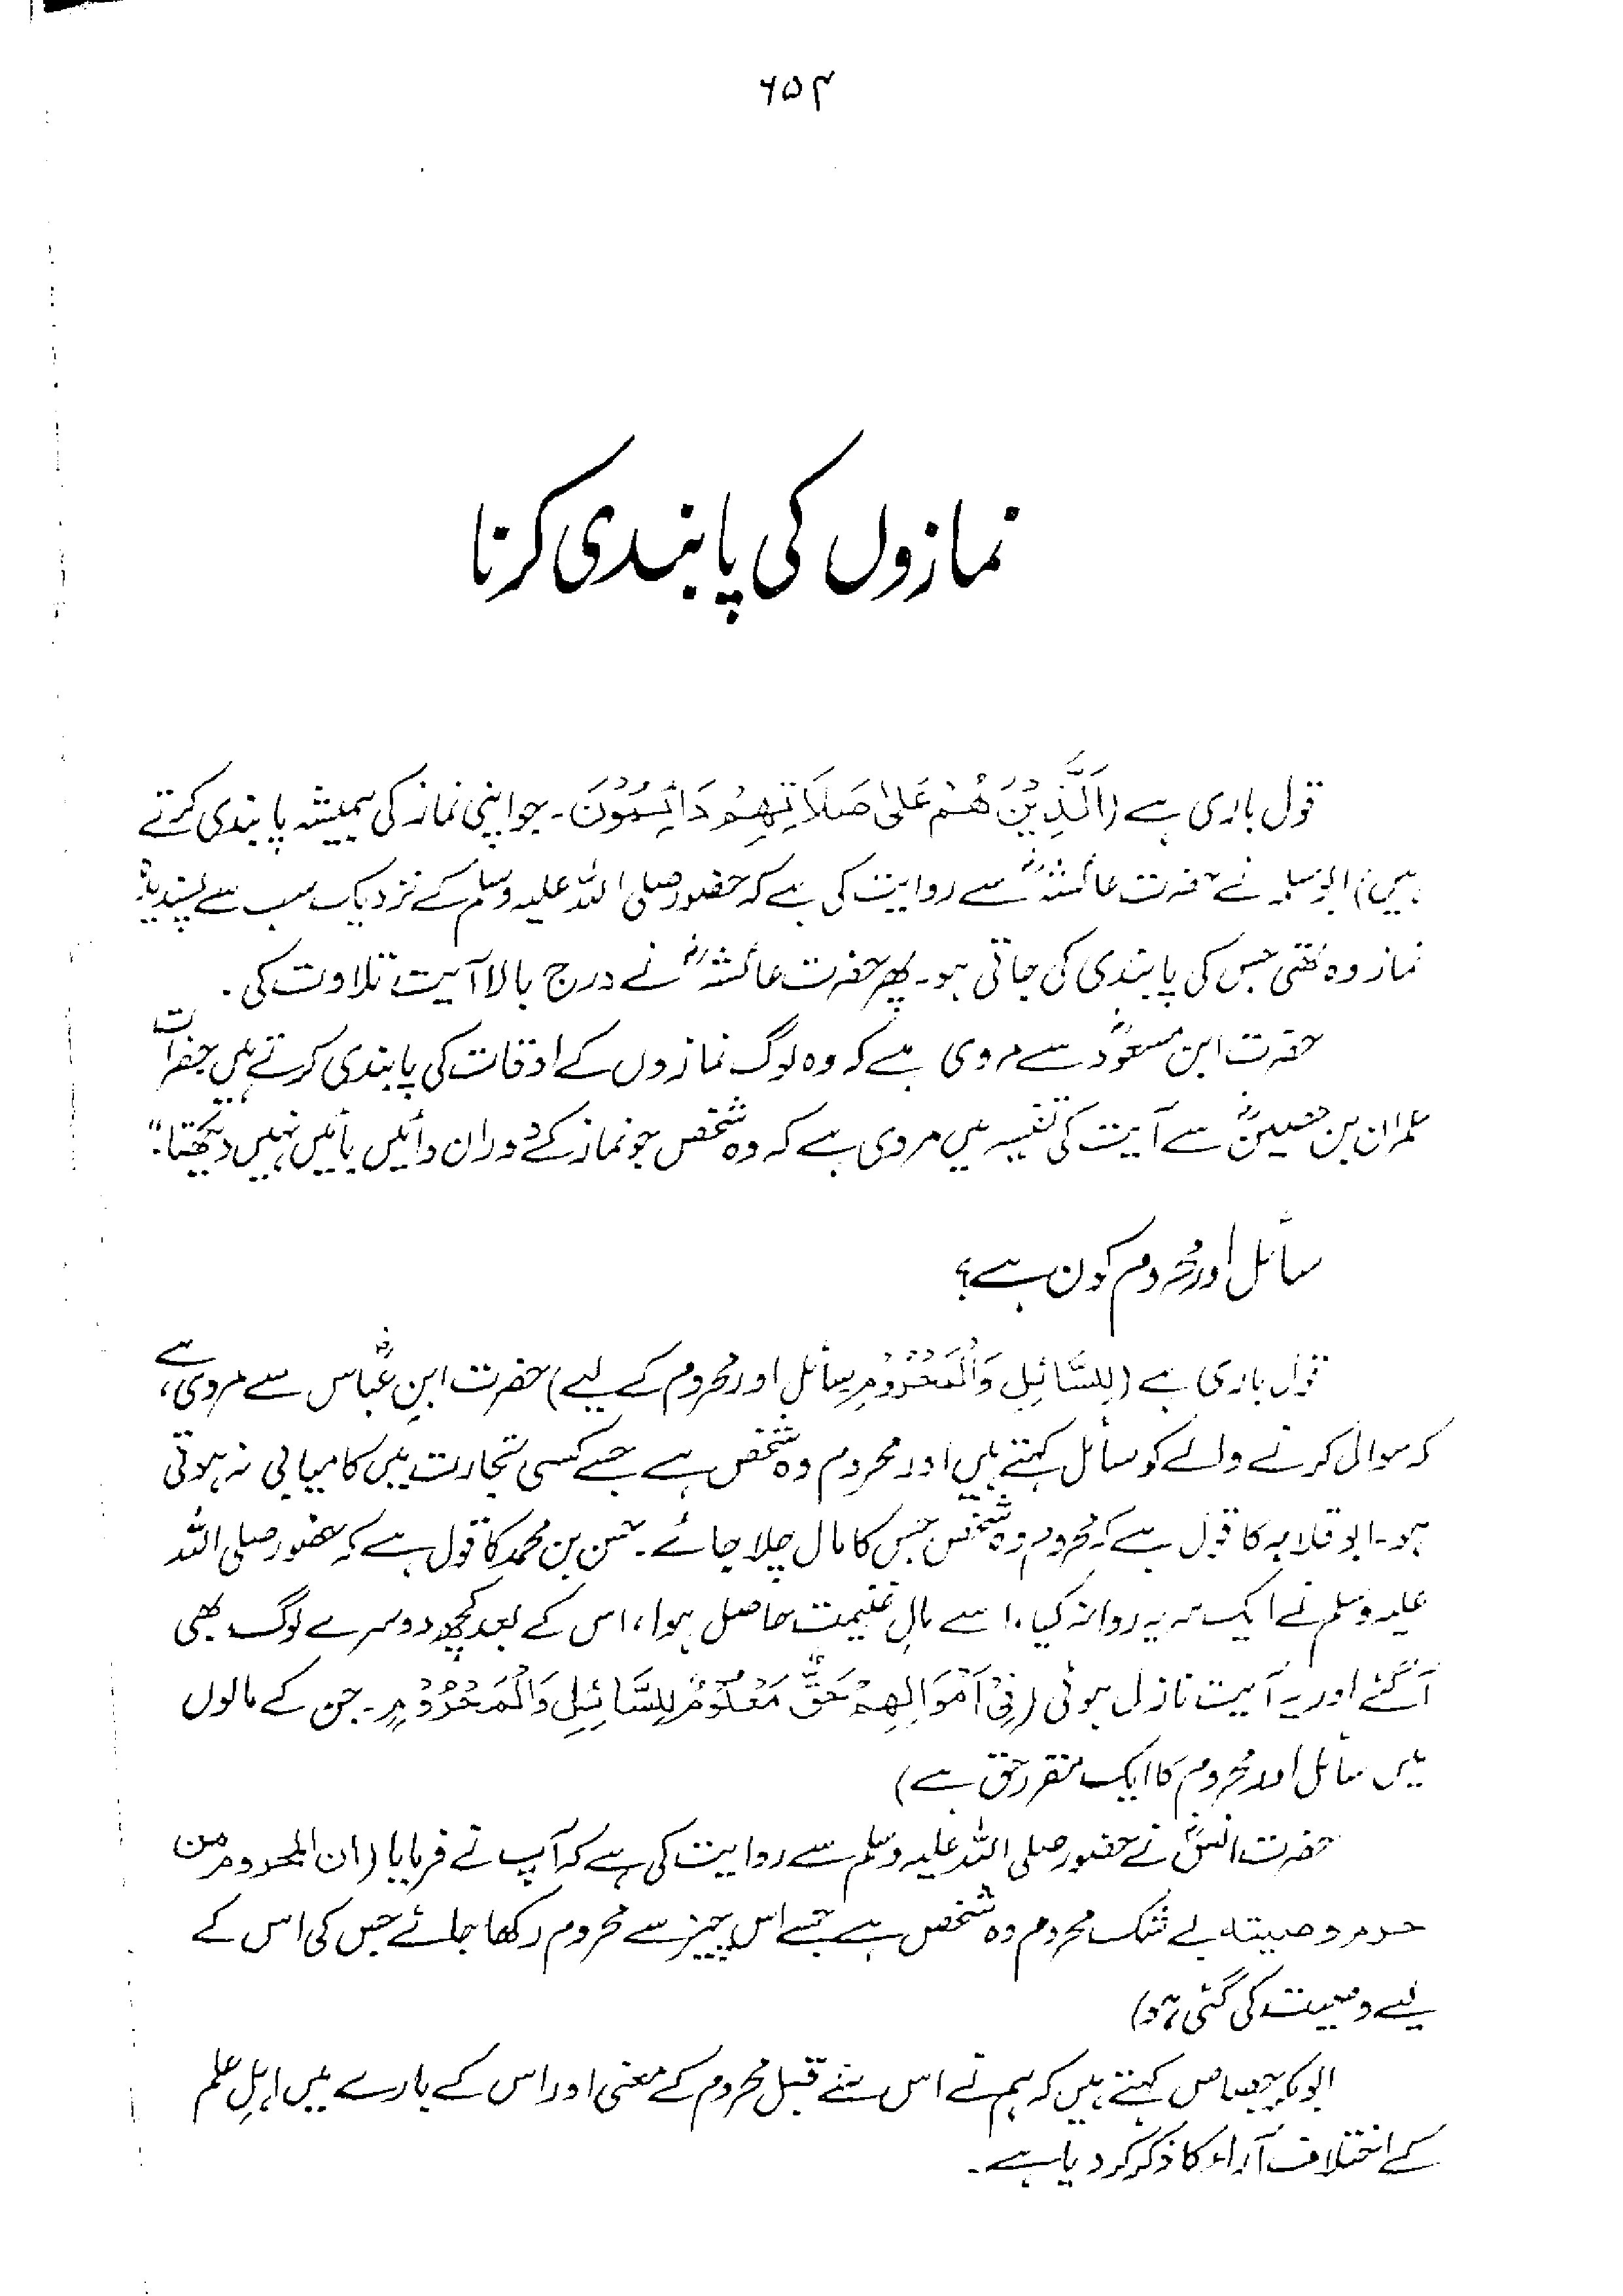 ۶۵۴
نمازوں کی پابندی کرنا
قول باری ہے (اَلَّذِیْنَ هُمْ عَلٰی صَلَاتِهِمْ دَائِمُوْنَ۔ جو اپنی نماز کی ہمیشہ پابندی کرتے
ہیں) ابوسلمہ نے حضرت عائشہؓ سے روایت کی ہے کہ حضور صلی اللہ علیہ وسلم کے نزدیک سب سے پسندیدہ
نماز وہ تھی جس کی پابندی کی جاتی ہو۔ پھر حضرت عائشہؓ نے درج بالا آیت تلاوت کی۔
حضرت ابن مسعودؓ سے مروی ہے کہ وہ لوگ نمازوں کے اوقات کی پابندی کرتے ہیں حضرات
عمران بن حصینؓ سے آیت کی تفسیر میں مروی ہے کہ وہ شخص جو نماز کے دوران دائیں بائیں نہیں دیکھتا۔"
سائل اور محروم کون ہے؟
قول باری ہے (لِلسَّائِلِ وَالْمَحْرُوْمِ سائل اور محروم کے لیے) حضرت ابنِ عباسؓ سے مروی ہے،
کہ سوال کرنے والے کو سائل کہتے ہیں اور محروم وہ شخص ہے جسے کسی تجارت میں کامیابی نہ ہوتی
ہو۔ ابو قلابہ کا قول ہے کہ محروم وہ شخص جس کا مال چلا جائے۔ حسن بن محمد کا قول ہے کہ حضور صلی اللہ
علیہ وسلم نے ایک سریہ روانہ کیا، اسے مالِ غنیمت حاصل ہوا، اس کے بعد کچھ دوسرے لوگ بھی
آ گئے اور یہ آیت نازل ہوئی (فِیْ اَمْوَالِهِمْ حَقٌّ مَعْلُوْمٌ لِلسَّائِلِ وَالْمَحْرُوْمِ۔ جن کے مالوں
میں سائل اور محروم کا ایک مقرر حق ہے)
حضرت انسؓ نے حضور صلی اللہ علیہ وسلم سے روایت کی ہے کہ آپ نے فرمایا (ان المحروم من
حرم وصیته بے شک محروم وہ شخص ہے جسے اس چیز سے محروم رکھا جائے جس کی اس کے
لیے وصیت کی گئی ہو)
ابوبکر جصاص کہتے ہیں کہ ہم نے اس سے قبل محروم کے معنی اور اس کے بارے میں اہلِ علم
کے اختلاف آراء کا ذکر کر دیا ہے۔